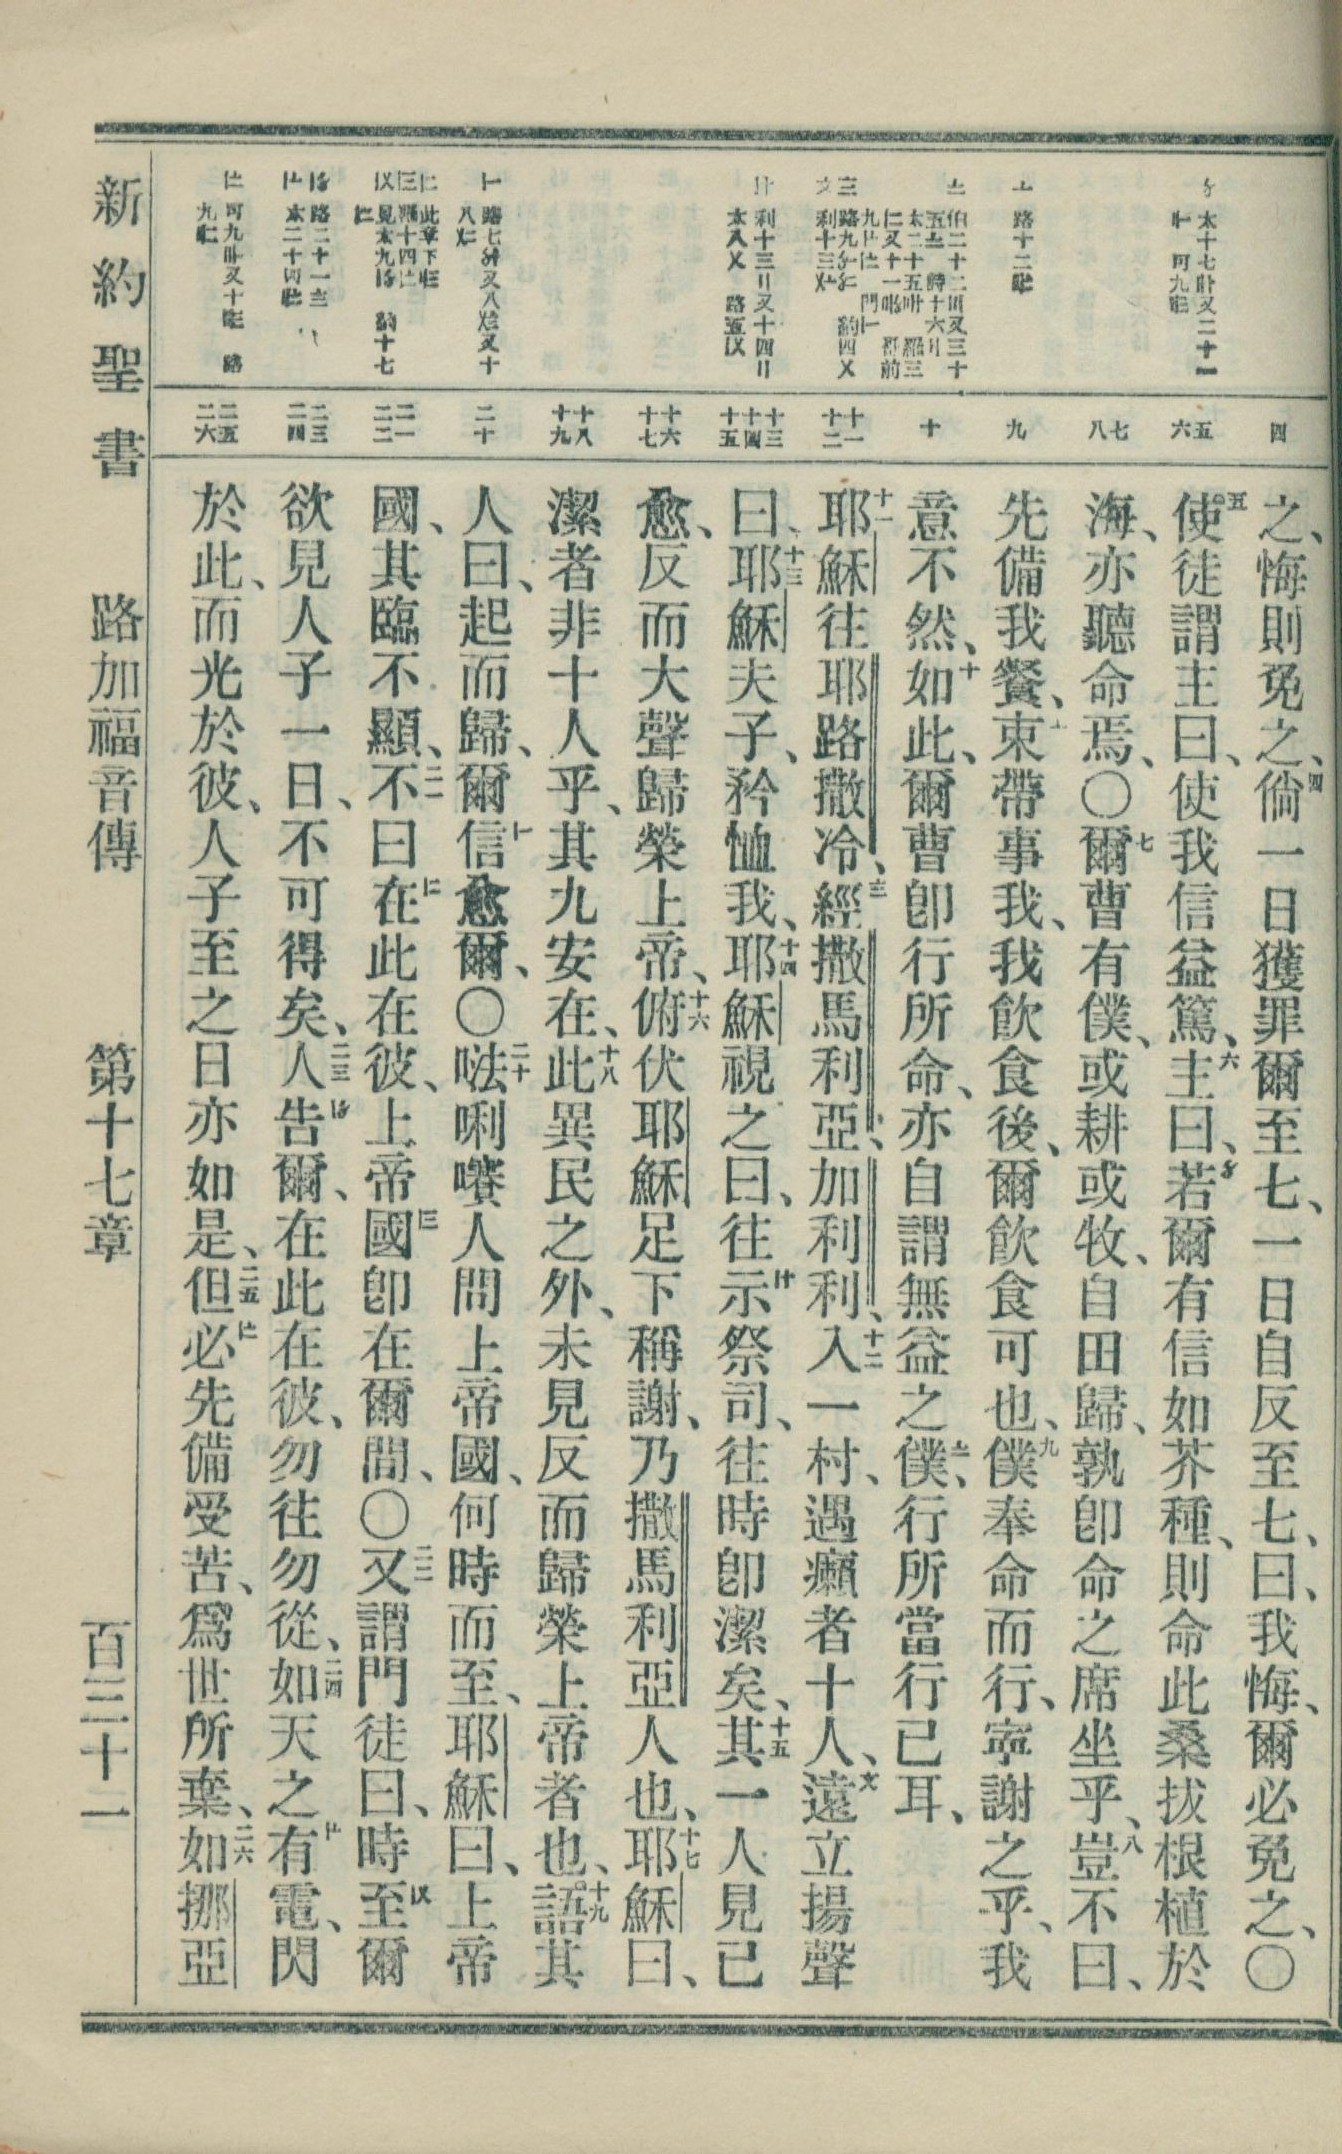 四
五
六
七
八
九
十
十一
十二
十三
十四
十五
十六
十七
十八
十九
二十
二一
二二
二三
二四
二五
二六
之、悔則免之、四倘一日獲罪爾至七、一日自反至七、曰、我悔、爾必免之、〇
五使徒謂主曰、使我信益篤、六主曰、若爾有信如芥種、則命此桑拔根植於
海、亦聽命焉、〇七爾曹有僕、或耕或牧、自田歸、孰卽命之席坐乎、八豈不曰、
先備我餐、束帶事我、我飲食後、爾飲食可也、九僕奉命而行、寧謝之乎、我
意不然、十如此、爾曹卽行所命、亦自謂無益之僕、行所當行已耳、
十一耶穌往耶路撒冷、經撒馬利亞、加利利、十二入一村、遇癩者十人、遠立揚聲
曰、十三耶穌夫子、矜恤我、十四耶穌視之曰、往示祭司、往時卽潔矣、十五其一人見已
愈、反而大聲歸榮上帝、十六俯伏耶穌足下稱謝、乃撒馬利亞人也、十七耶穌曰、
潔者非十人乎、其九安在、十八此異民之外、未見反而歸榮上帝者也、十九語其
人曰、起而歸、爾信愈爾、〇二十𠵽唎㘔人問上帝國、何時而至、耶穌曰、上帝
國、其臨不顯、二一不曰在此在彼、上帝國卽在爾間、〇二二又謂門徒曰、時至爾
欲見人子一日、不可得矣、二三人告爾、在此在彼、勿往勿從、二四如天之有電、閃
於此、而光於彼、人子至之日亦如是、二五但必先備受苦、爲世所棄、二六如挪亞
新約聖書 路加福音傳 第十七章 百三十二